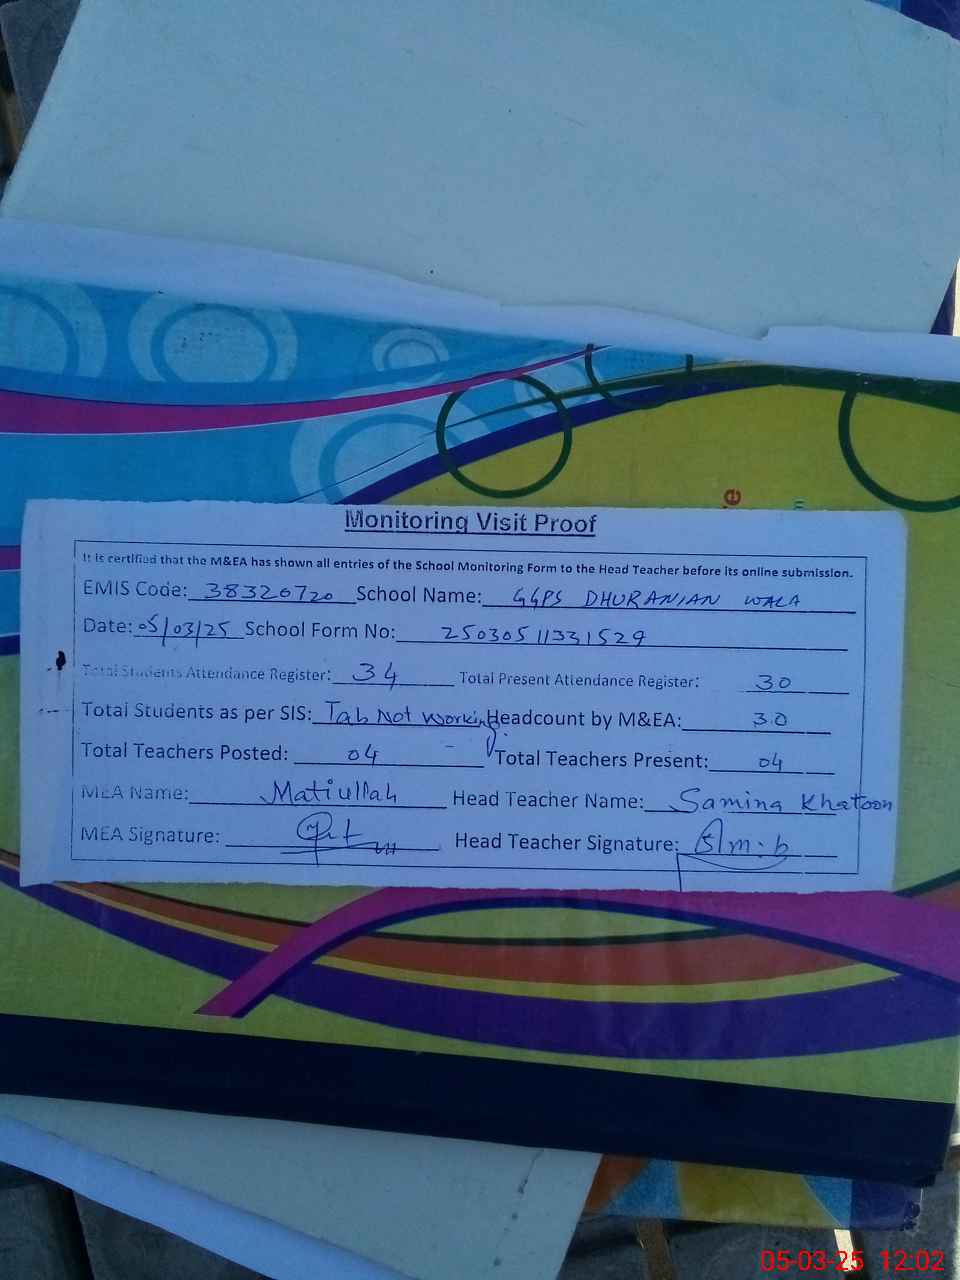 Monitoring Visit Proof
It is certified that the M&EA has shown all entries of the School Monitoring Form to the Head Teacher before its online submission.
EMIS Code: 38320720 School Name: GGPS DHURANIAN WALA
Date: 05/03/25 School Form No: 25030511331529
Total Students Attendance Register: 34 Total Present Attendance Register: 30
Total Students as per SIS: Tab Not working Headcount by M&EA: 30
Total Teachers Posted: 04 Total Teachers Present: 04
MEA Name: Matiullah Head Teacher Name: Samina Khatoon
MEA Signature: Head Teacher Signature:
05-03-25 12:02